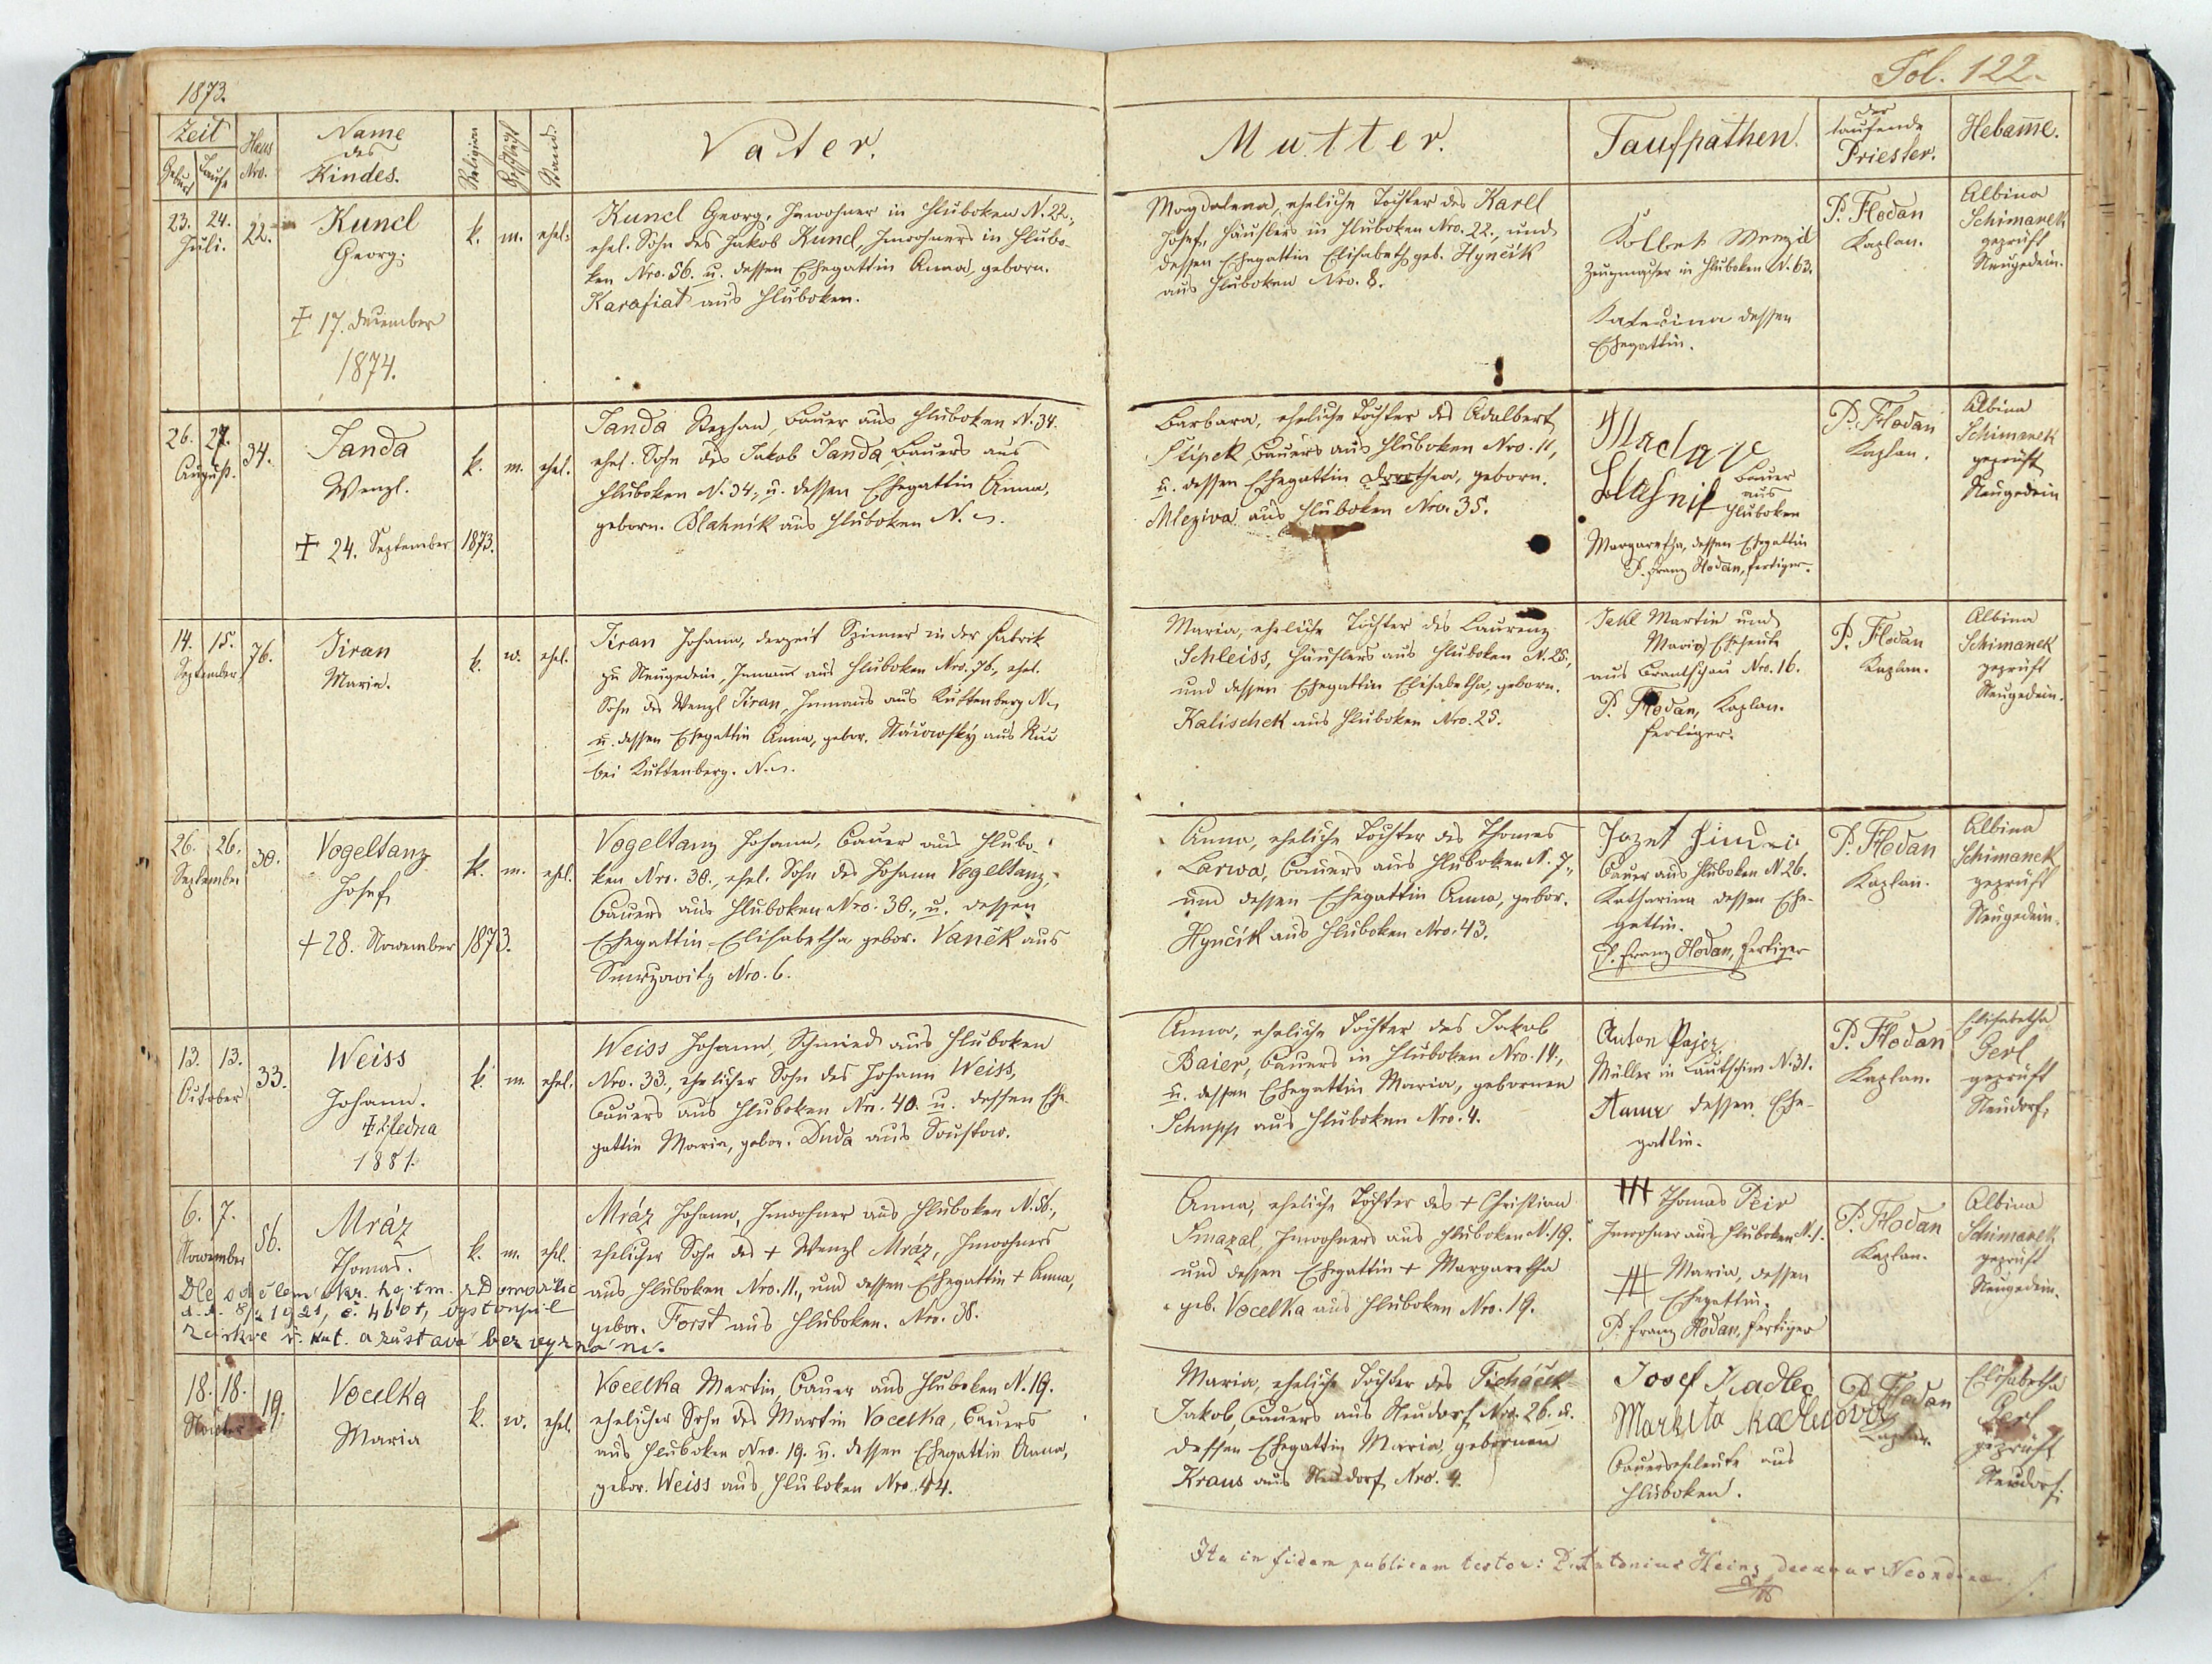 1873.
Fol. 122.
Zeit
Geburt Taufe
Haus Nro.
Name
des
Kindes.
Religion
Geschlecht
Stand
Vater.
Mutter.
Taufpathen.
der
taufende
Priester.
Hebamme.
23. 24.
Juli.
22.
Kuncl
Georg.
✝ 17. December
1874.
k. m. ehel.
Kuncl Georg, Inwohner in Hluboken N. 22.,
ehel. Sohn des Jakob Kuncl, Inwohners in Hlubo-
ken Nro. 56. u. dessen Ehegattin Anna, geborn.
Karafiat aus Hluboken.
Magdalena, eheliche Tochter des Karel
Josef, Häuslers in Hluboken Nro. 22., und
dessen Ehegattin Elisabeth geb. Hynčík
aus Hluboken Nro. 8.
Kolbek Wenzil
Zeugmacher in Hluboken N. 63.
Kateřina dessen
Ehegattin.
P. Hodan
Kaplan.
Albina
Schimanek
geprüft
Neugedein.
26. 27.
August.
34.
Janda
Wenzl.
✝ 24. September 1873.
k. m. ehel.
Janda Stephan, Bauer aus Hluboken N. 34.
ehel. Sohn des Jakob Janda, Bauers aus
Hluboken N. 34., u. dessen Ehegattin Anna,
geborn. Blahnik aus Hluboken N.
Barbara, eheliche Tochter des Adalbert
Stipek, Bauers aus Hluboken Nro. 11,
u. dessen Ehegattin Dorothea, geborn.
Mleziva aus Hluboken Nro. 35.
Bauer
aus
Hluboken
Margaretha, dessen Ehegattin
P. Franz Hodan, fertiger.
P. Hodan
Kaplan.
Albina
Schimanek
geprüft
Neugedein
14. 15.
September
76.
Jiran
Maria.
k. w. ehel.
Jiran Johann, derzeit Spinner in der Fabrik
zu Neugedein, Inmann aus Hluboken Nro. 76., ehel.
Sohn des Wenzl Jiran, Inmans aus Kuttenberg N.
u. dessen Ehegattin Anna, gebor. aus
bei Kuttenberg. N.
Maria, eheliche Tochter des Laurenz
Schleiss, Häuslers aus Hluboken N. 25.,
und dessen Ehegattin Elisabetha, geborn.
Kalischek aus Hluboken Nro. 25.
Jakl Martin und
Maria, Eheleute
aus Nro. 16.
P. Hodan, Kaplan.
fertiger.
P. Hodan
Kaplan.
Albina
Schimanek
geprüft
Neugedein.
26. 26.
September
30.
Vogeltanz
Josef
✝ 28. November 1873.
k. m. ehel.
Vogeltanz Johann, Bauer aus Hlubo-
ken Nro. 30., ehel. Sohn des Johann Vogeltanz,
Bauers aus Hluboken Nro. 30., u. dessen
Ehegattin Elisabetha gebor. Vaněk aus
Smrzowitz Nro. 6.
Anna, eheliche Tochter des Thomas
Larwa, Bauers aus Hluboken N. 7.,
und dessen Ehegattin Anna, gebor.
Hynčík aus Hluboken Nro. 43.
Jozef
Bauer aus Hluboken N 26.
Katharina dessen Ehe-
gattin.
P. Franz Hodan, fertiger
P. Hodan
Kaplan.
Albina
Schimanek
geprüft
Neugedein.
13. 13.
October
33.
Weiss
Johann.
✝ 1881.
k. m. ehel.
Weiss Johann, Schmied aus Hluboken
Nro. 33., ehelicher Sohn des Johann Weiss,
Bauers aus Hluboken Nro. 40. u. dessen Ehe-
gattin Maria, gebor. Duda aus
Anna, eheliche Tochter des Jakob
Baier, Bauers in Hluboken Nro. 14.,
u. dessen Ehegattin Maria, gebornen
Schupp aus Hluboken Nro. 4.
Anton Pajer
Müller in Kautschim N. 31.
Anna dessen Ehe-
gattin.
P. Hodan
Kaplan.
Elisabetha
Gerl
geprüft
Neudorf.
6. 7.
November
56.
Mráz
Thomas.
k. m. ehel.
Dle sdělení okr. hejtm. z Domažlic
d. d. 8/2 1921, č. 4601, vystoupil
z církve ř. kat. a zůstává bez vyznání.
Mráz Johann, Inwohner aus Hluboken N. 56.,
ehelicher Sohn des ✝ Wenzl Mráz, Inwohners
aus Hluboken Nro. 11., und dessen Ehegattin ✝ Anna,
gebor. Forst aus Hluboken. Nro. 38.
Anna, eheliche Tochter des ✝ Christian
Smazal, Inwohners aus Hluboken N. 19.
und dessen Ehegattin ✝ Margaretha
geb. Vocelka aus Hluboken Nro. 19.
✝✝✝ Thomas Peir
Inwohner aus Hluboken N. 1.
✝✝✝ Maria, dessen
Ehegattin.
P. Franz Hodan, fertiger
P. Hodan
Kaplan.
Albina
Schimanek
geprüft
Neugedein.
18. 18.
19.
Vocelka
Maria
k. w. ehel.
Vocelka Martin, Bauer aus Hluboken N. 19.
ehelicher Sohn des Martin Vocelka, Bauers
aus Hluboken Nro. 19. u. dessen Ehegattin Anna,
gebor. Weiss aus Hluboken Nro. 44.
Maria, eheliche Tochter des Ticháček
Jakob, Bauers aus Neudorf Nro. 26. u.
dessen Ehegattin Maria, gebornen
Kraus aus Neudorf Nro. 4
Josef Kadlec
Markéta Kadlecová
Bauerseheleute aus
Hluboken.
P. Hodan
Kaplan.
Elisabetha
Gerl
geprüft
Neudorf.
Ita in fidem publicam testor: P. Antonius Heinz, decanus